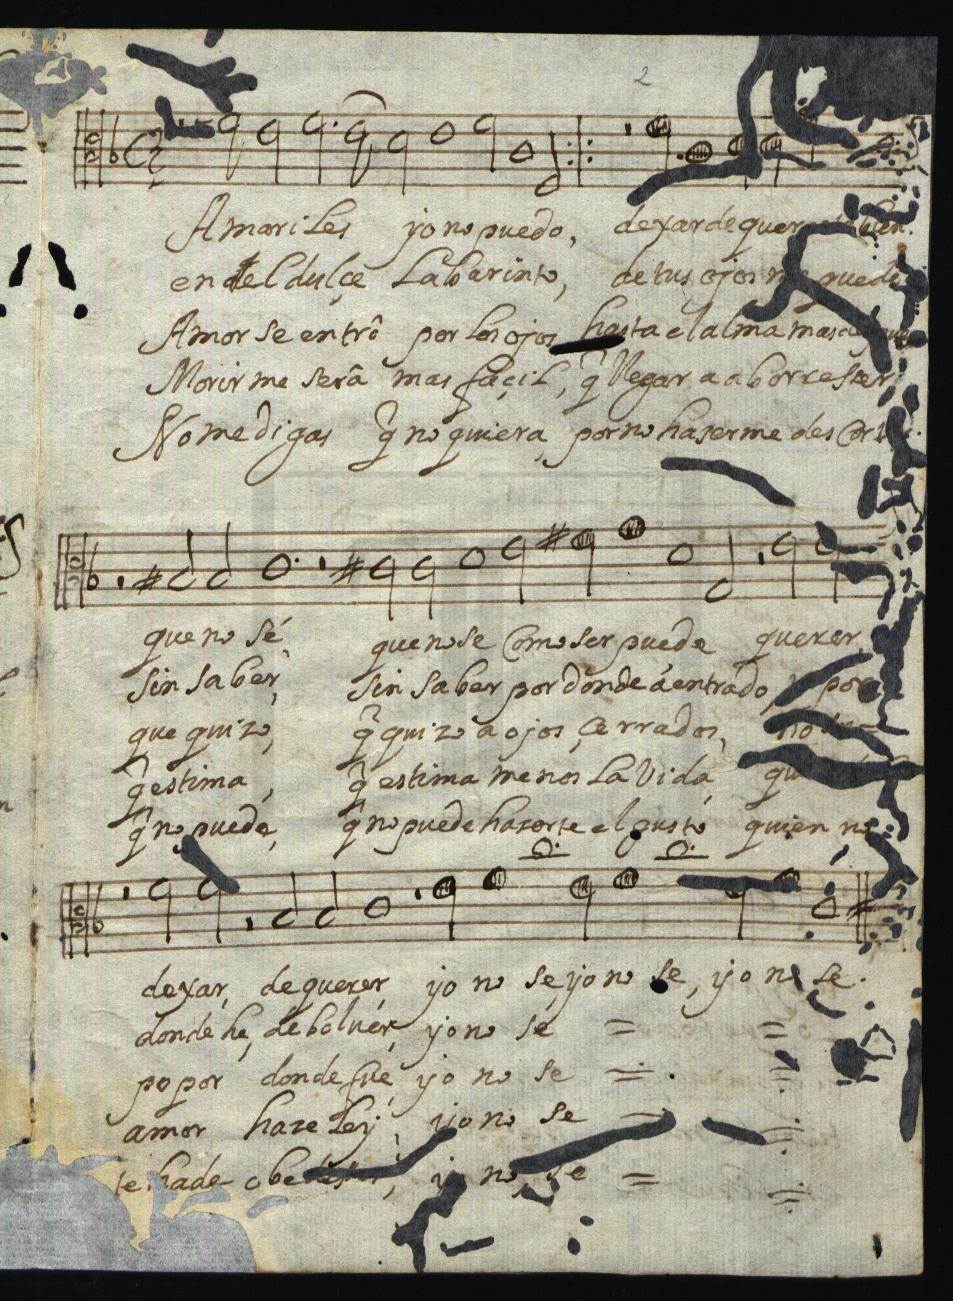 2
Amariles yo no puedo, dexar de
en del dulçe Labarinto, de tus ojos me puede
Amor se entrô por los ojos hasta el alma mas
Morir me serâ mas façil, q̃ llegar a aborreser
No me digas q̃ no quiera, por no haserme des
que no sé que no se Como ser puede querer,
sin saber, sin saber por donde á entrado, por
que quizo, q̃ quizo a ojos çerrados, no
q̃ estima, q̃ estima menos La Vida,
q̃ no puede, q̃ no puede haserte el gusto quien no
dexar, de querer, yo no se, yo no se, yo no se.
donde he, de bolvér, yo no se = =
po por donde fué, yo no se = =
amor haze Ley, yo no se = =
te hade no se = =